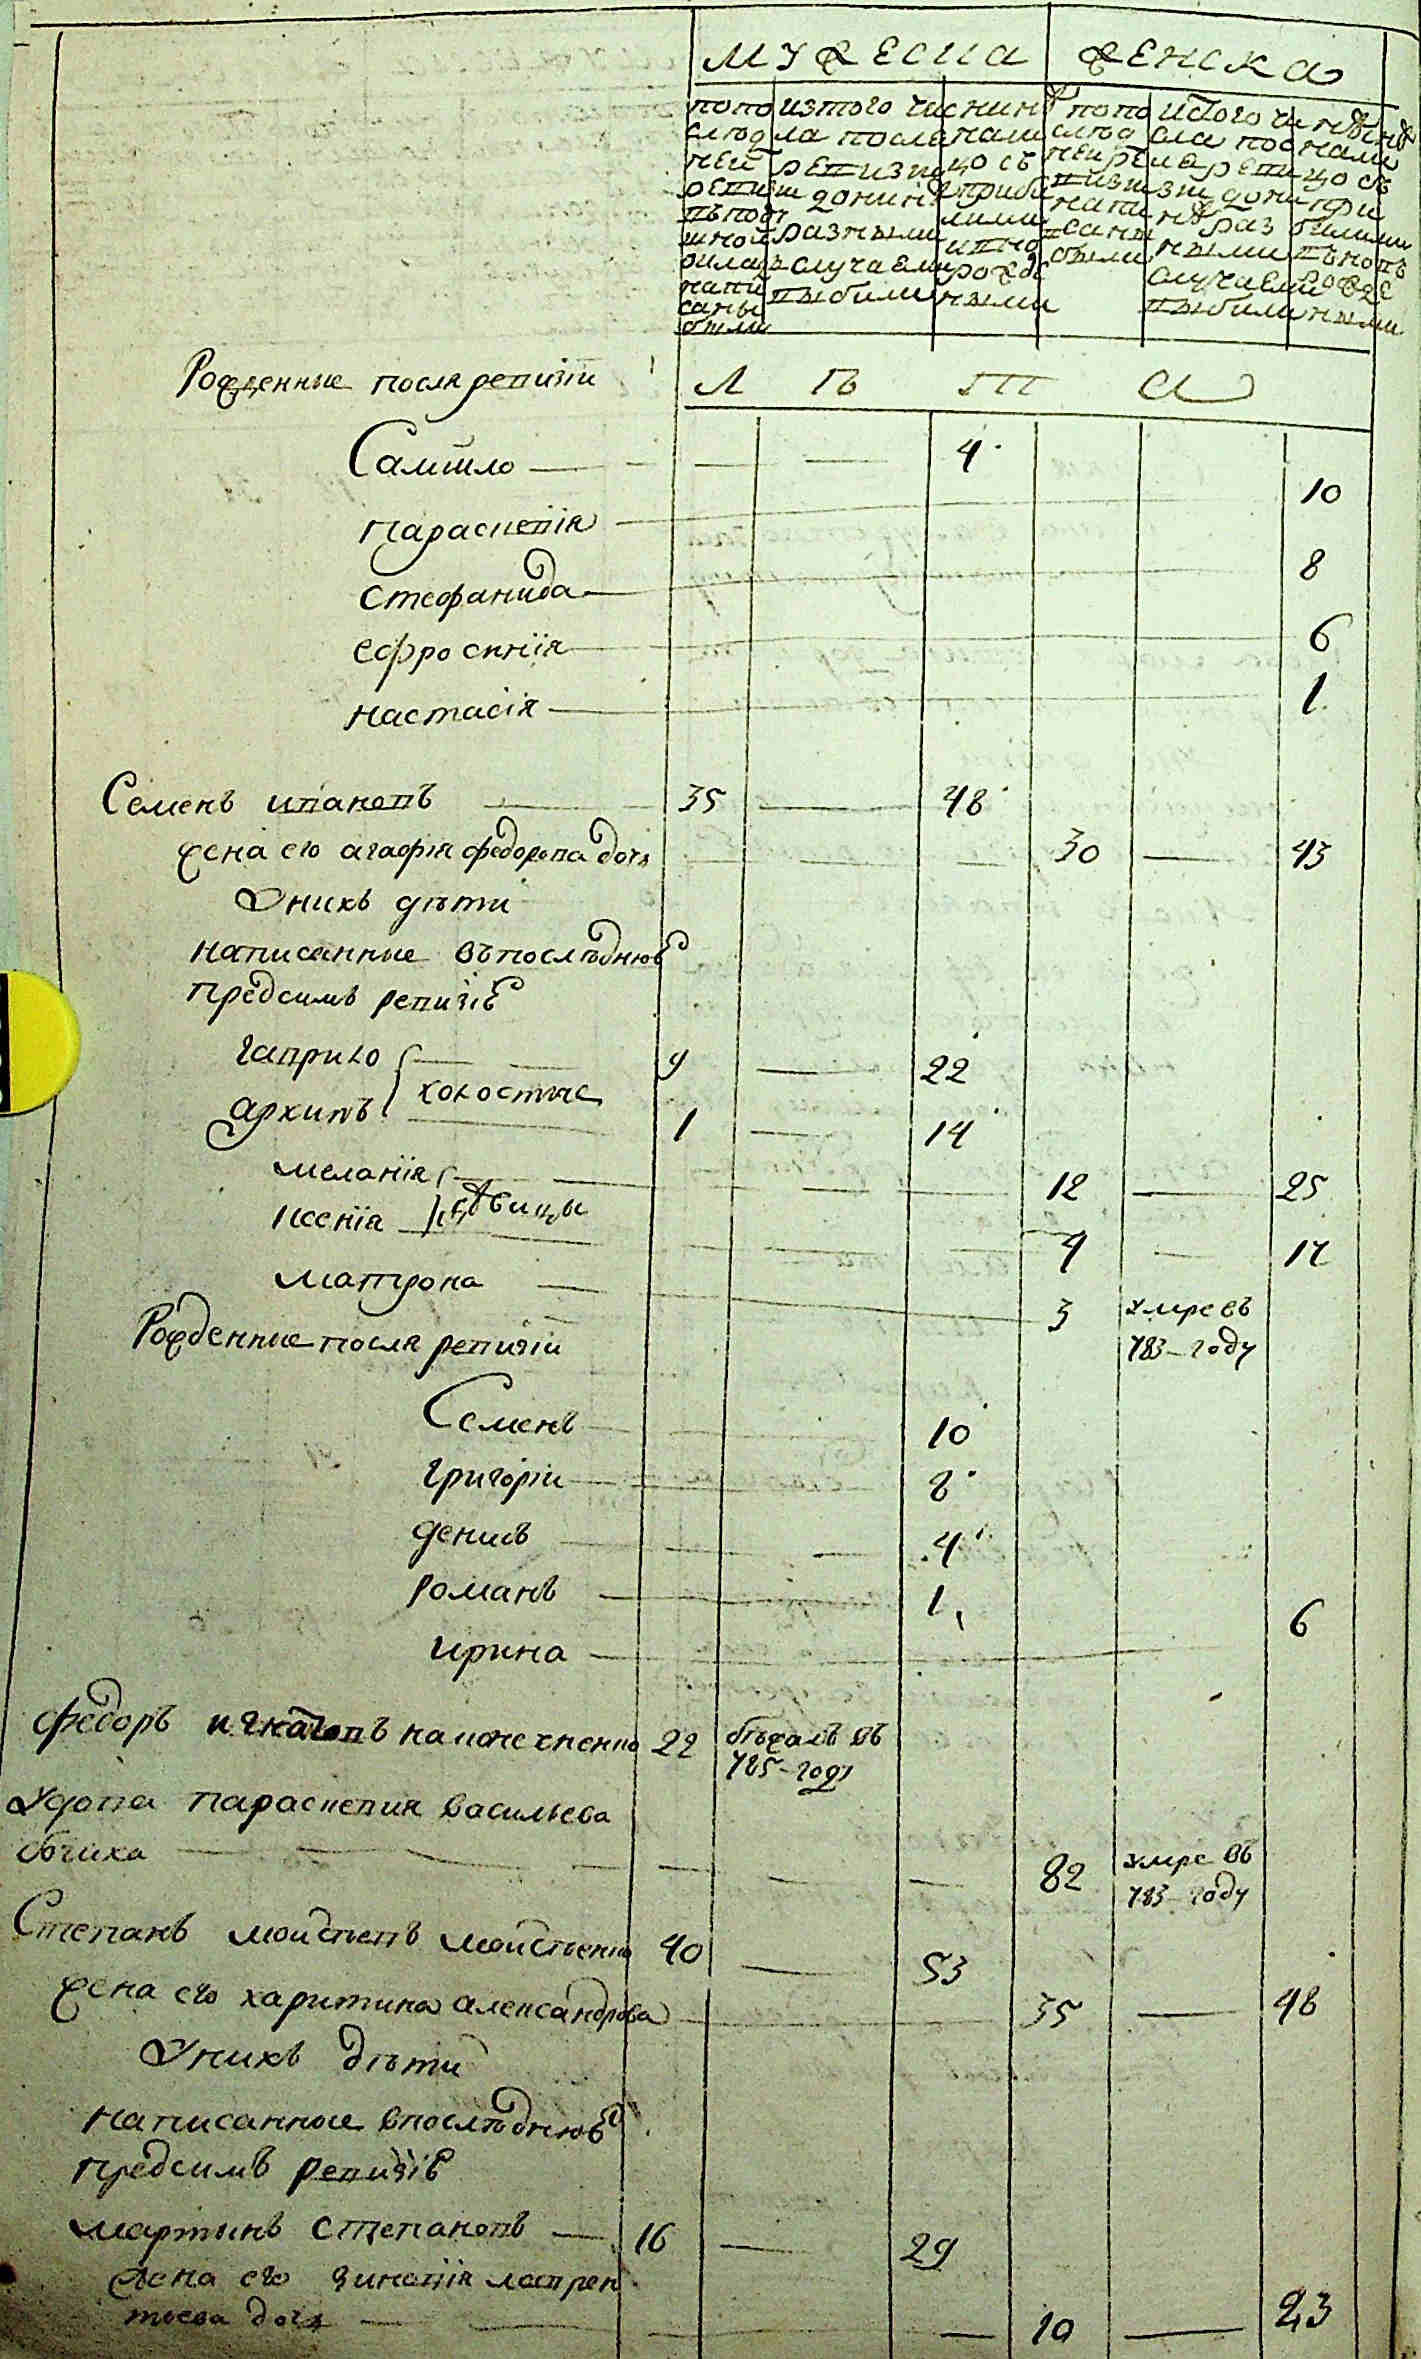 мужеска женска
попо слюд ней ревизи въ подушной окладъ написаны были
изтого числа после ревизи донинѣ разными случаеми выбили
нинѣ налицо съ прибилими и вно рождеными
попослюдней ревизии написаны были
истого числа по ревизии донинѣ разными случаеми выбили
нинѣ налицо съ прибилими въновь рождеными
Рожденные посля ревизіи
Л ѣ т а
Самойло 4
Параскевія 10
Стефанида 8
Ефросинія 6
Настасія 1
Семенъ ивановъ 35 48
жена его агафія федорова дочь 30 43
Унихъ дѣти
написанные въпослѣднюю
предсимъ ревизіѣ
гаврило 9 22
холостые
архипъ 1 14
меланія 12 25
дѣвицы
ксенія 4 17
матрона 3 умре въ
783 году
Рожденные посля ревизіи
Семенъ 10
григоріи 8
денисъ 4
романъ 1
ирина 6
федоръ игнатовъ 22 бѣжалъ въ
785 году
Удова параскевия васильева
82 умре въ
783 году
Степанъ мойсѣевъ 40 53
жена его харитина александрова 35 48
Унихъ дѣти
написанные впослѣднюю
предсимъ ревизіѣ
мартынъ степановъ 16 29
жена его зиновія лаврен
тьева дочь 10 23